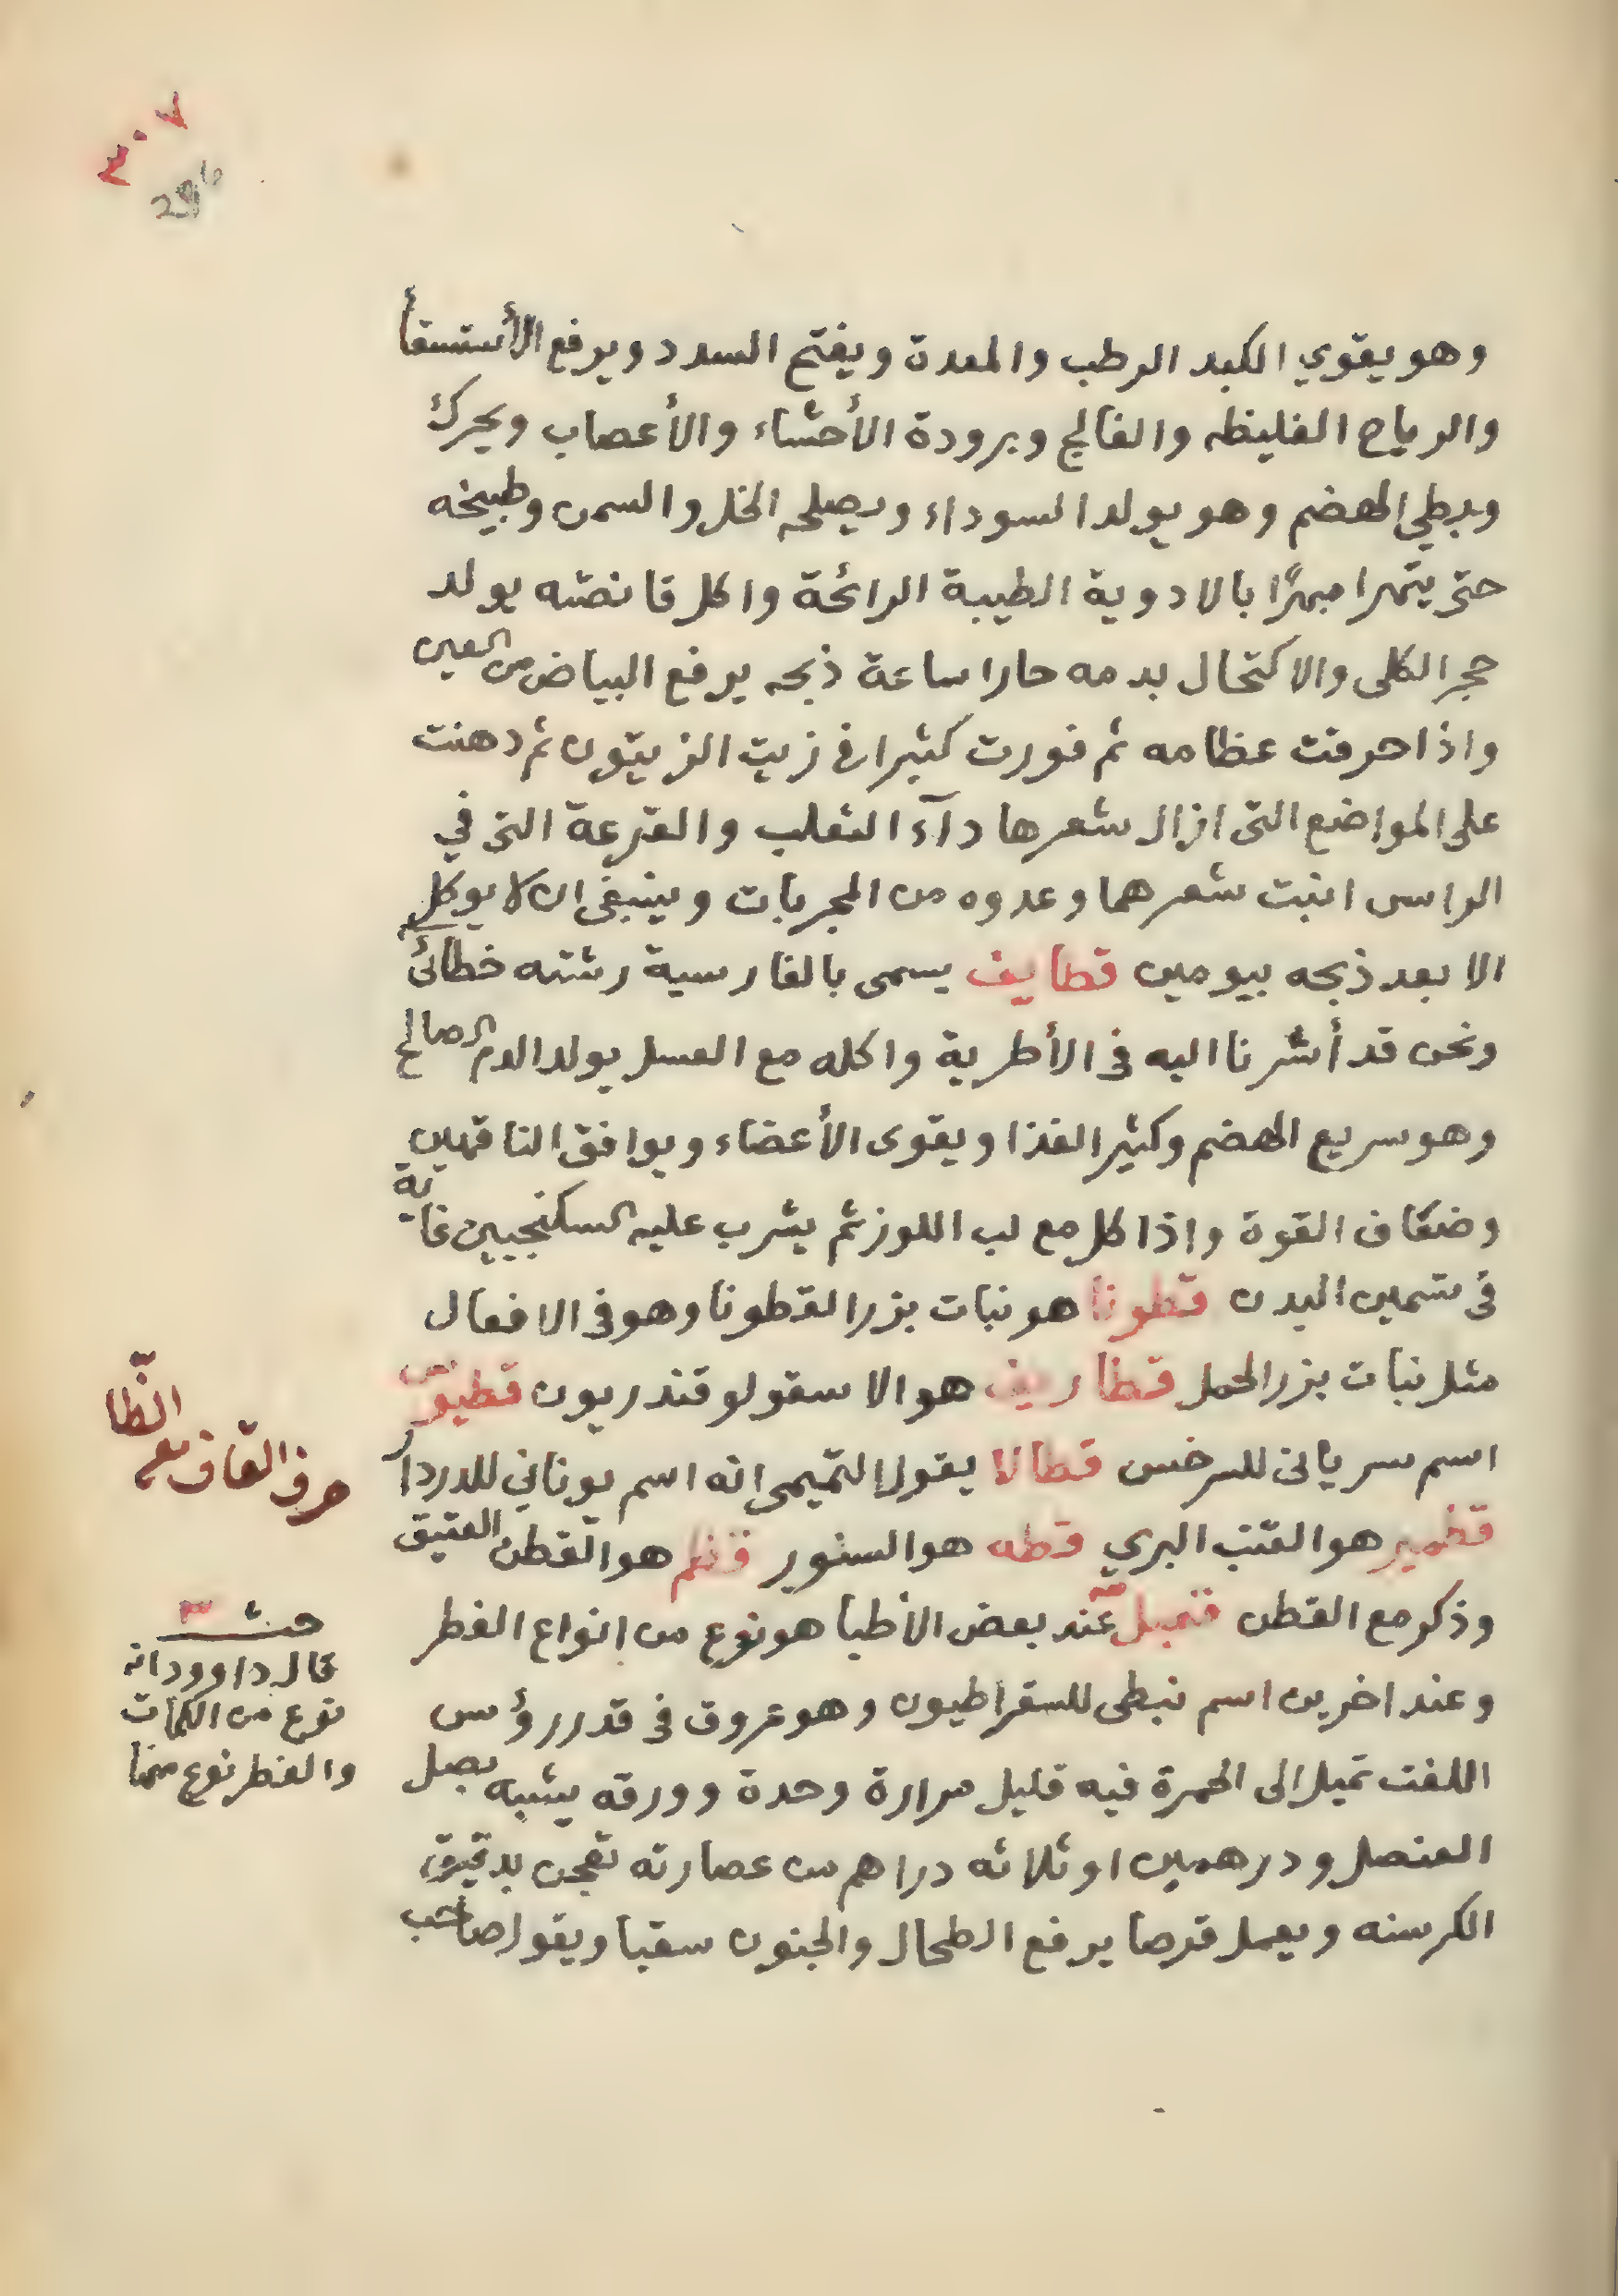 ٣٠٧
296
وهو يقوي الكبد الرطب والمعدة ويفتح السدد ويرفع الأستسقأ
والرياح الغليظه والفالج وبرودة الأحشاء والأعصاب ويحرك
وبطي الهضم وهو يولد السوداء ويصلحه الخل والسمن وطبيخه
حتى يتهرا مبهرًا بالادوية الطيبة الرائحة واكل قانصته يولد
حجر الكلى والاكتحال بدمه حارا ساعة ذبحه يرفع البياض من العين
واذا حرقت عظامه ثم فورت كثيرا في زيت الزيتون ثم دهنت
على المواضع التى ازال شعرها دآء الثعلب والقرعة التى في
الراس انبت شعرهما وعدوه من المجربات وينبغى ان لا يوكل
الا بعد ذبحه بيومين قطايف يسمى بالفارسية رشته خطائى
ونحن قد أشرنا اليه فى الأطرية واكله مع العسل يولد الدم الصالح
وهو سريع الهضم وكثير الغذا ويقوى الأعضاء ويوافق الناقهين
وضعاف القوة واذا كل مع لب اللوز ثم يشرب عليه السكنجبين غاية
فى تسمين البدن قطونا هو نبات بزر القطونا وهو فى الافعال
مثل نبات بزر الحمل قطاريف هو الاسقولوقندريون قطيقس
اسم سريانى للسرخس قطالا يقول التميمى انه اسم يوناني للدردار
قطمير هو القنب البري قطه هو السنور قطم هو القطن العتيق
وذكر مع القطن قنبيل عند بعض الأطبا هو نوع من انواع الفطر
وعند اخرين اسم نبطى للسقراطيون وهو عروق فى قدر رؤس
اللفت تميل الى الحمرة فيه قليل مرارة وحدة وورقه يشبه بصل
العنصل ودرهمين او ثلاثه دراهم من عصارته تعجن بدقيق
الكرسنه ويعمل قرصا يرفع الطحال والجنون سقيا ويقول صاحب
حرف القاف مع الطا
قال داوود انه
نوع من الكمأت
والفطر نوع منها